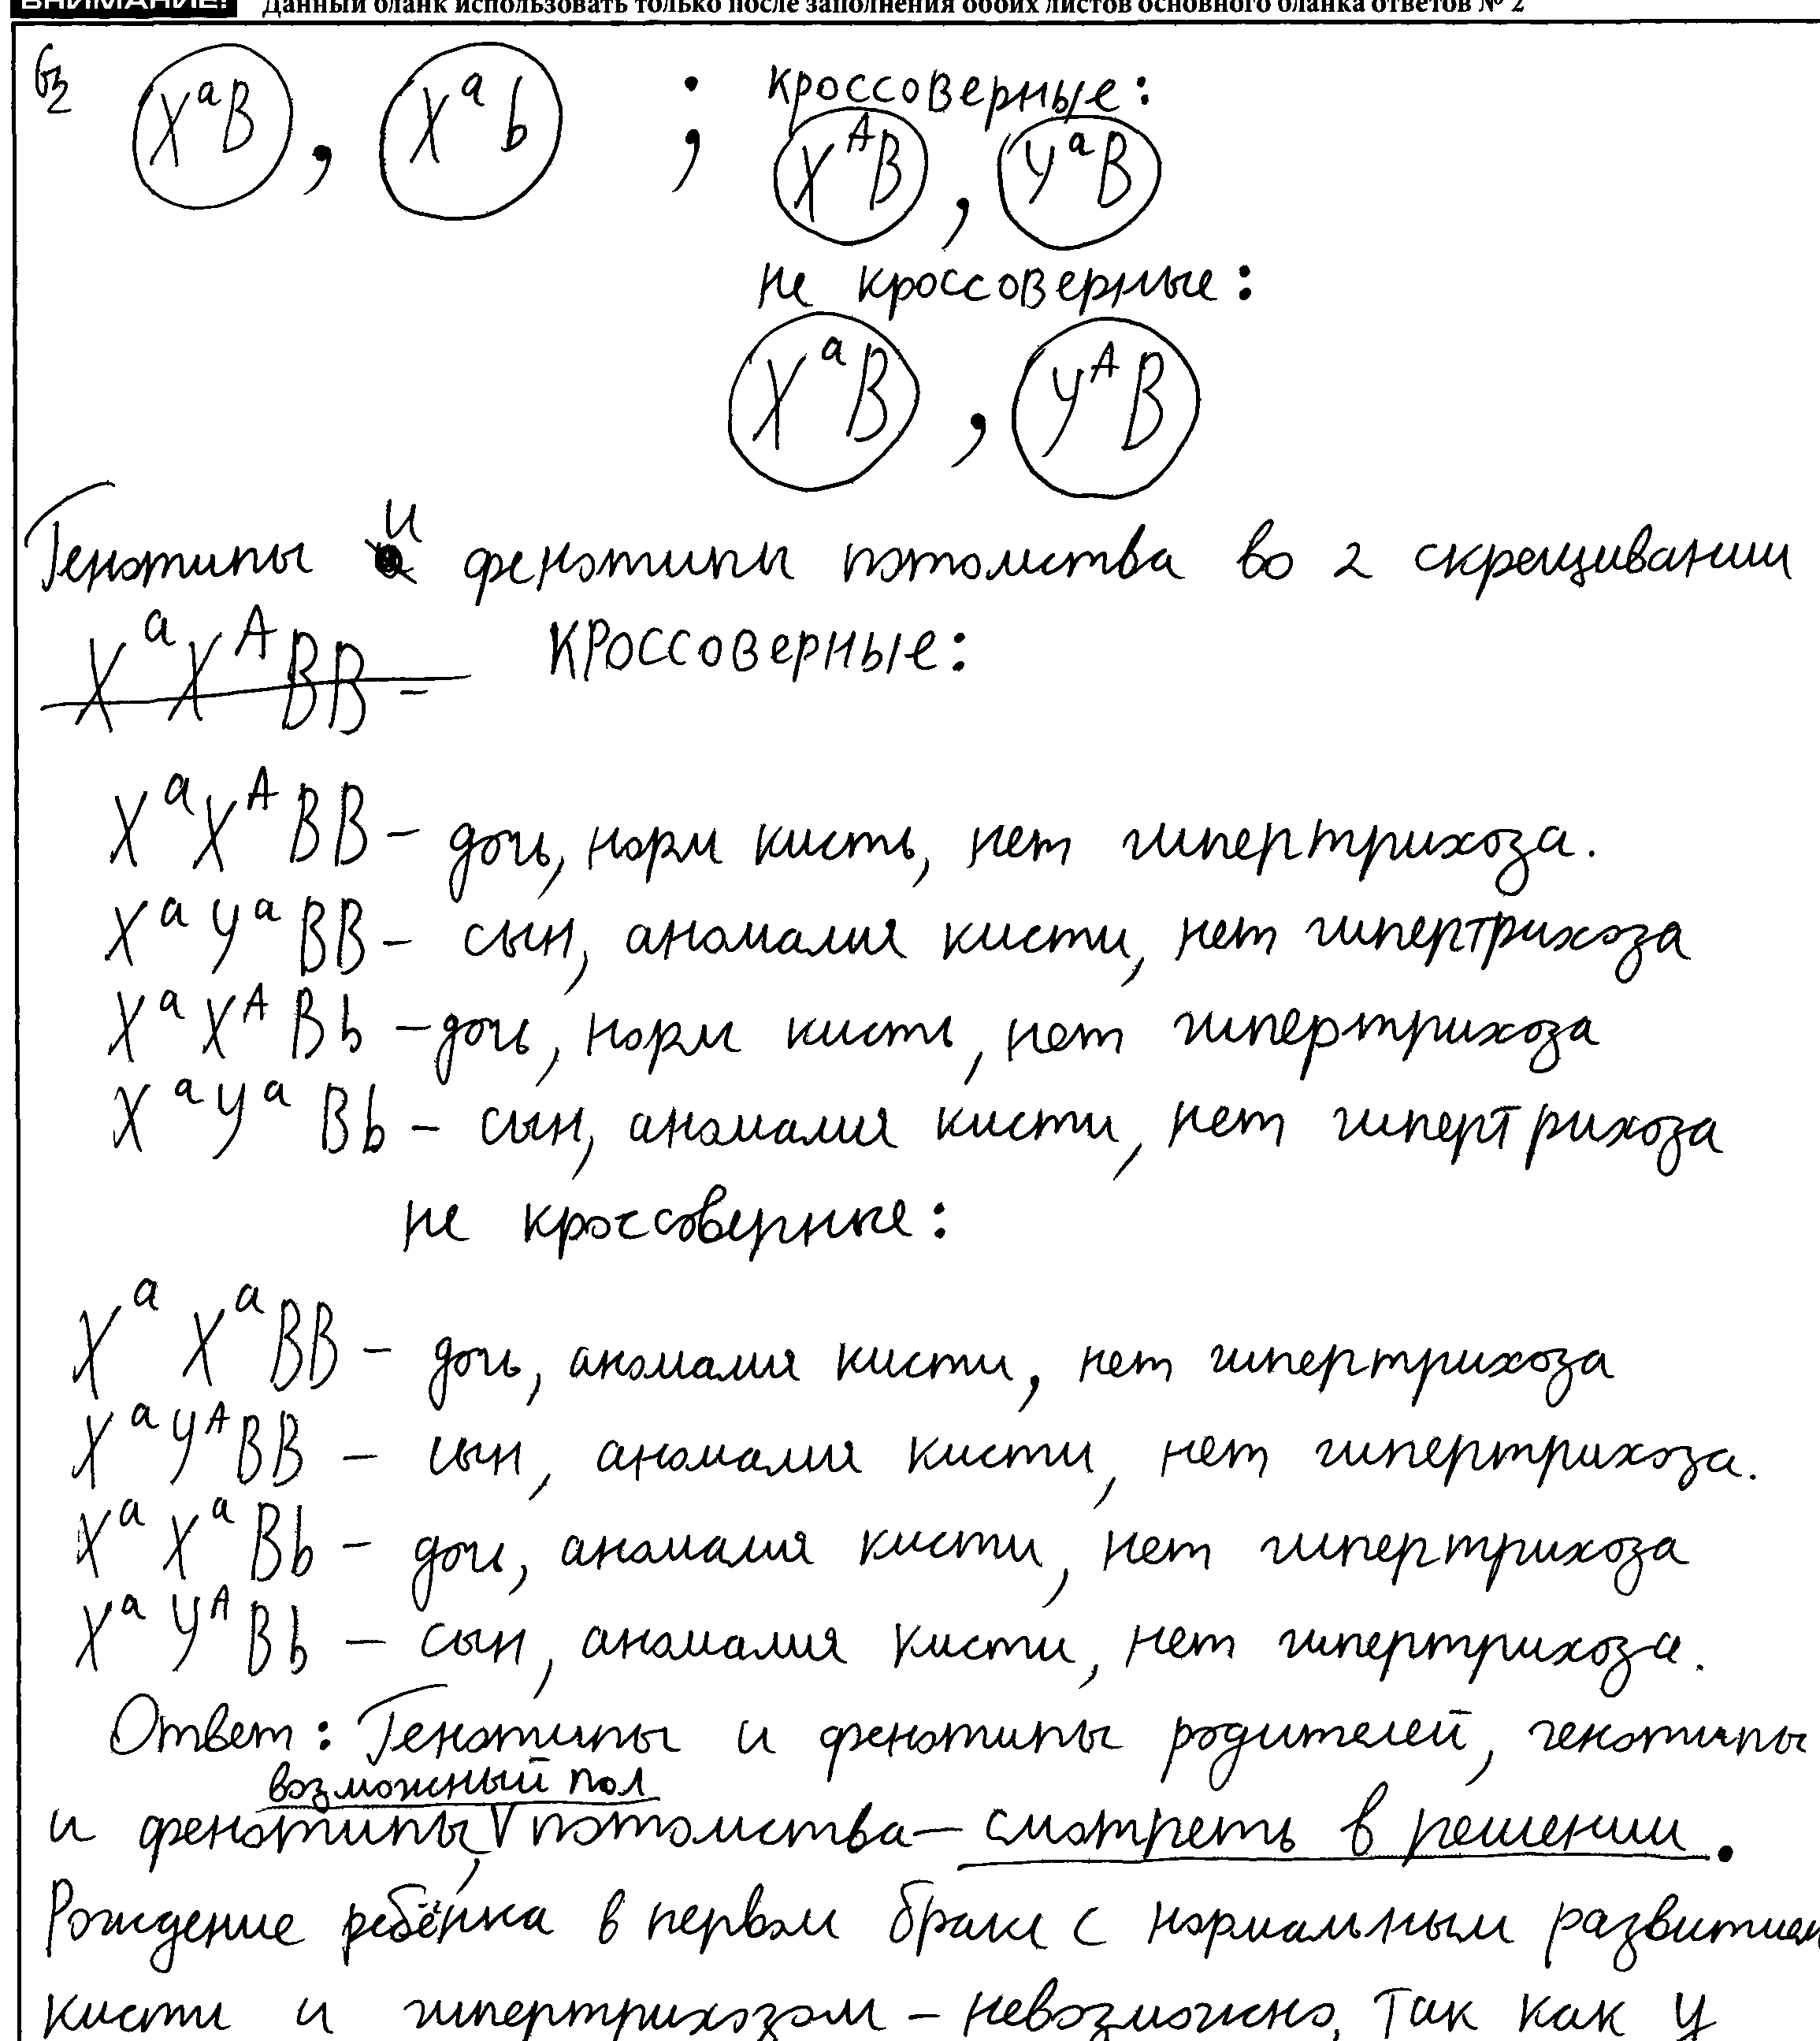 ВНИМАНИЕ! Данный бланк использовать только после заполнения обоих листов основного бланка ответов № 2
G₂ XᵃB , Xᵃb ; кроссоверные:
XᴬB , YᵃB
не кроссоверные:
XᵃB , YᴬB
Генотипы и фенотипы потомства во 2 скрещивании
XᵃXᴬBB – кроссоверные:
XᵃXᴬBB – дочь, норм кисть, нет гипертрихоза.
XᵃYᵃBB – сын, аномалия кисти, нет гипертрихоза
XᵃXᴬBb – дочь, норм кисть, нет гипертрихоза
XᵃYᵃBb – сын, аномалия кисти, нет гипертрихоза
не кроссоверные:
XᵃXᵃBB – дочь, аномалия кисти, нет гипертрихоза
XᵃYᴬBB – сын, аномалия кисти, нет гипертрихоза.
XᵃXᵃBb – дочь, аномалия кисти, нет гипертрихоза
XᵃYᴬBb – сын, аномалия кисти, нет гипертрихоза.
Ответ: Генотипы и фенотипы родителей, генотипы
возможный пол
и фенотипы, V потомства – смотреть в решении.
Рождение ребёнка в первом браке с нормальным развитием
кисти и гипертрихозом – невозможно, так как у